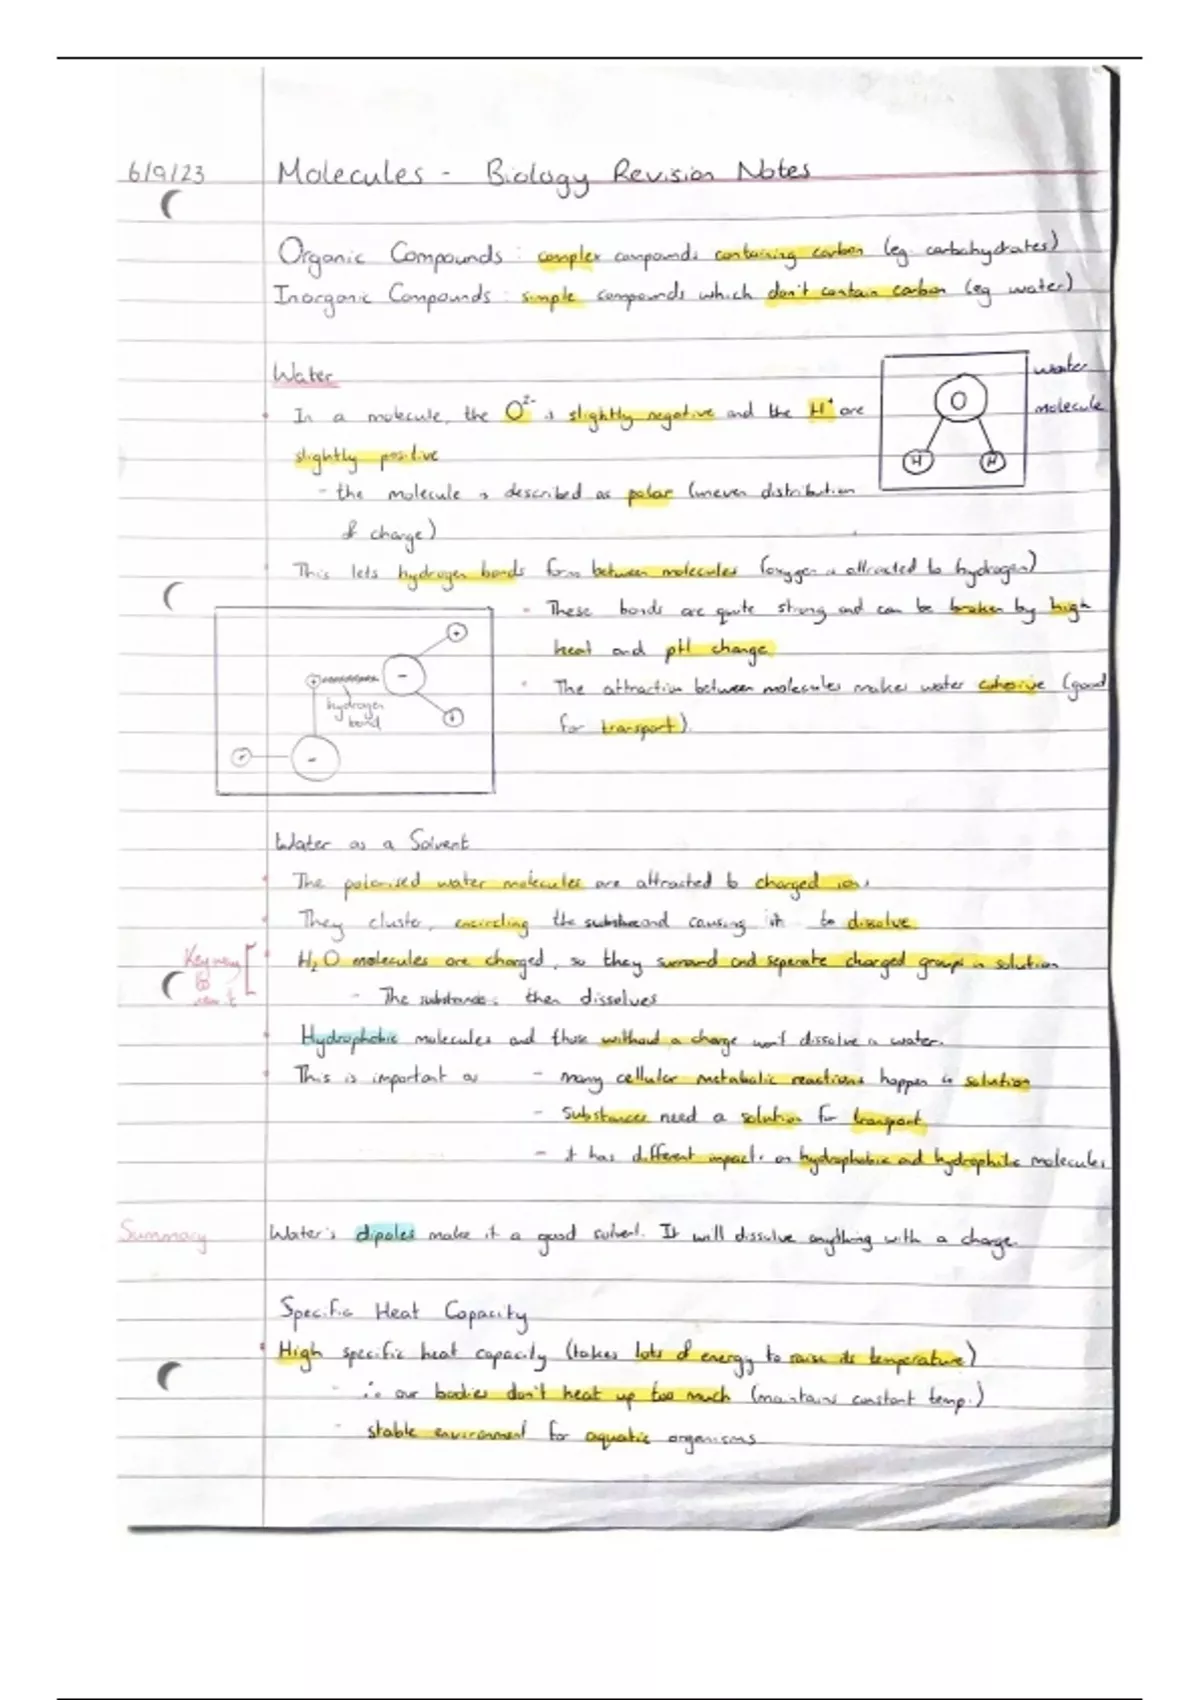 6/9/23 Molecules - Biology Revision Notes
Organic Compounds : complex compounds containing carbon (eg. carbohydrates)
Inorganic Compounds : simple compounds which don't contain carbon (eg water)
Water
water
molecule
O
H H
In a molecule, the O²⁻ is slightly negative and the H⁺ are
slightly positive
- the molecule is described as polar (uneven distribution
of charge)
This lets hydrogen bonds form between molecules (oxygen is attracted to hydrogen)
- These bonds are quite strong and can be broken by high
heat and pH change
The attraction between molecules makes water cohesive (good
for transport).
+
-
+
hydrogen
bond
+
+
-
Water as a Solvent
The polarised water molecules are attracted to charged ions
They cluster, encircling the causing it to dissolve
Key way
to
H₂O molecules are charged, so they surround and seperate charged groups in solution
- The substance then dissolves
Hydrophobic molecules and those without a charge won't dissolve in water.
This is important as - many cellular metabolic reactions happen in solution
- Substances need a solution for transport
- it has different impacts on hydrophobic and hydrophilic molecules
Summary Water's dipoles make it a good solvent. It will dissolve anything with a charge.
Specific Heat Capacity
High specific heat capacity (takes lots of energy to raise its temperature)
- ∴ our bodies don't heat up too much (maintains constant temp.)
- stable environment for aquatic organisms